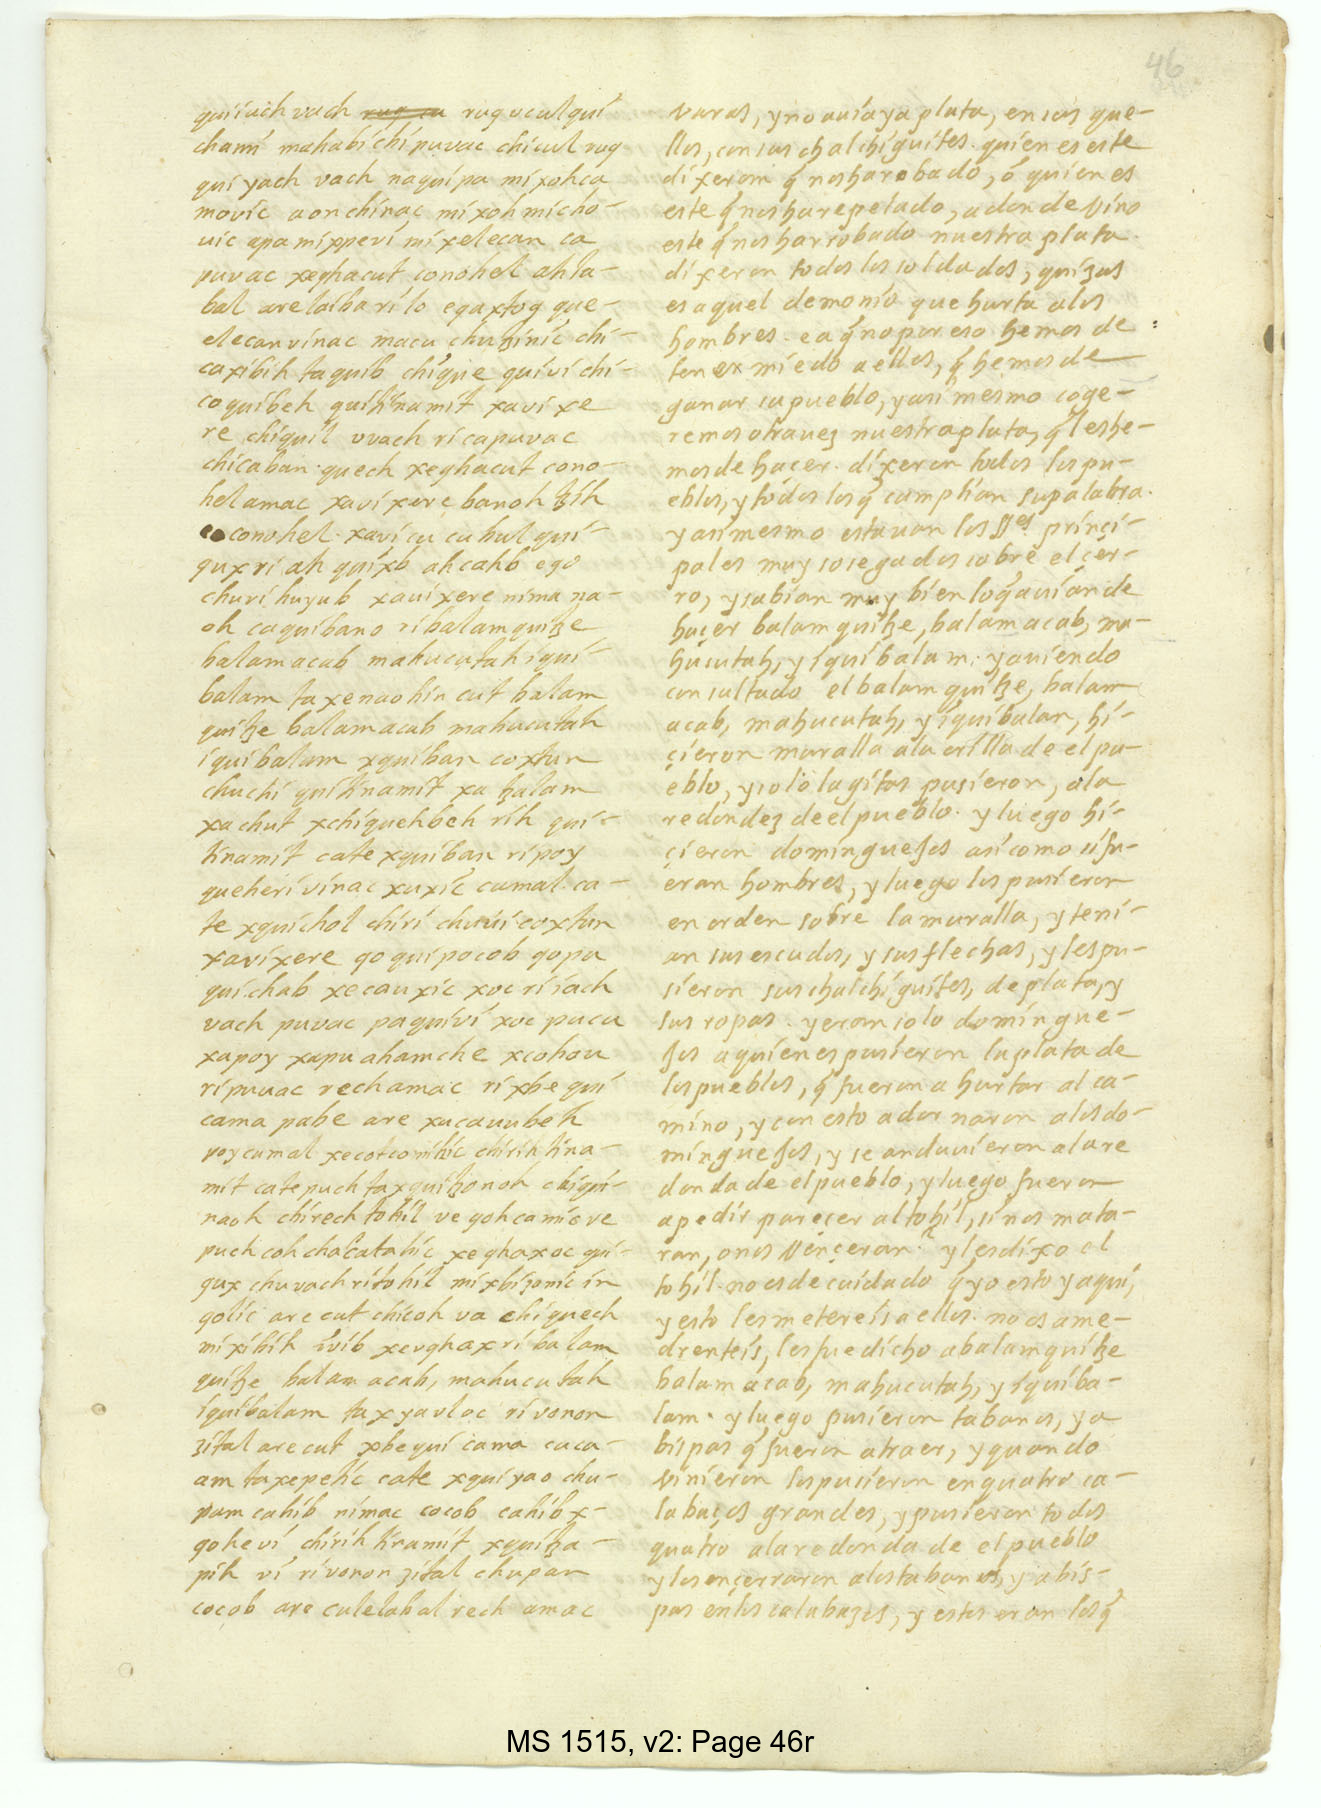 46
quiiach vach rug cu rug vculqui
chamí mahabichi puvac chicul rug
qui yach vach naquipa mixohca
movic aonchinac mixohmicho-
vic apa mixpevi mixelecan ca
puvac xeghacut conohel ahla-
bal are laibarilo egaxtog que-
elecanvinac macu chuzinic chi-
caxibih taquib chique quivi chi-
coquibeh quihinamit xavixe
re chiquil vvach ricapuvac
chicaban quech xeghacut cono-
helamac xavixere banoh tzih
conohel xavicu cuhul qui-
qux ri ah quixb ahcahb ego
churi huyub xavixere nima na-
oh caquibano ribalamquitze
balamacab mahucutah iqui-
balam taxenaohin cut balam
quitze balamacab mahucutah
iquibalam xquiban coxtun
chuchi quihinamit xa tzalam
xachut xchiquehbeh rih qui-
tinamit cate xquiban ripoy
queheri vinac xuxic cumal ca-
te xquichol chiri chuvi coxtun
xavixere qo quipocob qopu
quichab xecauxic xoc riiach
vach puvac paquivi xoc pucu
xapoy xapu ahamche xcohou
ripuvac rech amac rixbe qui
cama pabe are xucauubeh
poycumal xecotcomihic chirih tina-
mit catepuch taxquitzonoh chiqui-
naoh chirech tohil ve qohcamicve
puch cohchacatahic xeghaxoc qui-
qux chuvach ritohil mixbisonic in
qolic are cut chicoh va chiquech
mixibih ivib xevghax ri balam
quitze balam acab, mahucutah
iquibalam taxyavloc ri vonon
zital are cut xbe qui cama cuca-
am taxepetic cate xquiyao chu-
pam cahib nimac cocob cahib x-
qohevi chirih tinamit xquitza-
pih vi rivonon zital chupan
cocob are culelabal rech amac
varas, y no auia ya plata, en sus que-
llos, con sus chalchiguites. quien es este
dixeron q̃ nos ha robado, o quien es
este q̃ nos ha repelado, a donde vino
este q̃ nos ha rrobado nuestra plata
dixeron todos los soldados, quizas
es aquel demonio que hurta a los
hombres. ea q̃ no por eso hemos de
tener miedo a ellos, q̃ hemos de
ganar su pueblo, y asi mesmo coge-
remos otra uez nuestra plata, q̃ les he-
mos de haçer. dixeron todos los pu-
eblos, y todos los q̃ cumplian su palabra.
y asi mesmo estauan los ss.es prinçi-
pales muy sosegados sobre el çer-
ro, y sabian muy bien lo q̃ auian de
haçer balam quitze, balam acab, ma-
hucutah, y iquibalam. y auiendo
consultado el balam quitze, balam
acab, mahucutah, y iquibalam, hi-
çieron muralla a la orilla de el pu-
eblo, y solo lagitas pusieron, a la
redondez de el pueblo. y luego hi-
çieron domingueJos asi como si fu-
eran hombres, y luego los pusieron
en orden sobre la muralla, y teni-
an sus escudos, y sus flechas, y les pu-
sieron sus chalchiguites, de plata, y
sus ropas. y eran solo domingue-
Jos a quienes pusieron la plata de
los pueblos, q̃ fueron a hurtar al ca-
mino, y con esto adornaron a los do-
mingueJos, y se anduuieron a la re
donda de el pueblo, y luego fueron
a pedir pareçer al tohil, si nos mata-
ran, o nos vençeran. y les dixo el
tohil. no es de cuidado q̃ yo estoy aqui,
y esto les metereis a ellos. no os ame-
drenteis, les fue dicho a balam quitze
balam acab, mahucutah, y iquiba-
lam. y luego pusieron tabanos, y a
bispas q̃ fueron a traer, y quando
vinieron los pusieron en quatro ca-
labaços grandes, y pusieron todos
quatro a la redonda de el pueblo
y los ençerraron a los tabanos, y abis-
pas en los calabazos, y estos eran los q̃
MS 1515, v2: Page 46r